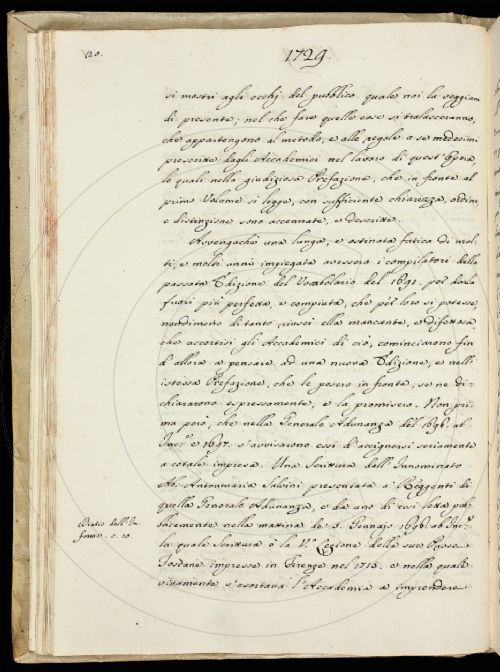 20.
1729.
si mostri agli occhj del pubblico quale noi la veggiam
di presente, nel che fare quelle cose si tralasceranno,
che appartengono al metodo, e alle regole a se medesimi
prescritte dagli Accademici nel lavoro di quest'Opera,
le quali nella giudiziosa Prefazione, che in fronte al
primo Volume si legge, con sufficiente chiarezza, ordine,
e distinzione sono accennate, e descritte.
Avvengachè una lunga, e ostinata fatica di mol-
ti, e molti anni impiegata avessero i compilatori della
passata Edizione del Vocabolario del 1691. per darla
fuori più perfetta, e compiuta, che per loro si potesse
nondimeno di tanto riuscì ella mancante, e difettosa
che accortisi gli Accademici di ciò, cominciarono fin
d'allora a pensare ad una nuova Edizione, e nell'
istessa Prefazione, che le posero in fronte, se ne di-
chiararono espressamente, e la promisero. Non pri-
ma però, che nella Generale Adunanza del 1696. ab
Inc.e 1697. s'avvisarono essi d'accignersi seriamente
a cotale impresa. Una Scrittura dall'Innominato
Ab. Antonmaria Salvini presentata a' Reggenti di
quella Generale Adunanza, e da uno di essi letta pub
blicamente nella mattina de' 3. Gennajo 1696. ab Inc.e
la quale Scrittura è la V.a Lezione delle sue Prose
Toscane impresse in Firenze nel 1715. e nella quale
vivamente s'esortava l'Accademia a imprendere
Diario dell'In-
fornin. c. 10.